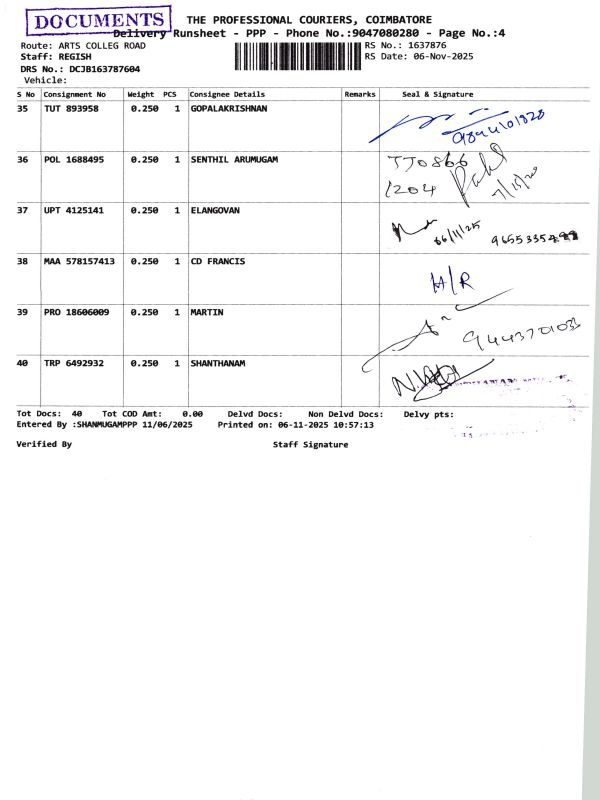 DOCUMENTS
THE PROFESSIONAL COURIERS, COIMBATORE
Delivery Runsheet - PPP - Phone No.:9047080280 - Page No.:4
Route: ARTS COLLEG ROAD
RS No.: 1637876
Staff: REGISH
RS Date: 06-Nov-2025
DRS No.: DCJB163787604
Vehicle:
S No Consignment No Weight PCS Consignee Details Remarks Seal & Signature
35 TUT 893958 0.250 1 GOPALAKRISHNAN
36 POL 1688495 0.250 1 SENTHIL ARUMUGAM
TJ0866
1204
37 UPT 4125141 0.250 1 ELANGOVAN
06/11/25
38 MAA 578157413 0.250 1 CD FRANCIS
H/R
39 PRO 18606009 0.250 1 MARTIN
9443701033
40 TRP 6492932 0.250 1 SHANTHANAM
Tot Docs: 40 Tot COD Amt: 0.00 Delvd Docs: Non Delvd Docs: Delvy pts:
Entered By :SHANMUGAMPPP 11/06/2025 Printed on: 06-11-2025 10:57:13
Verified By Staff Signature